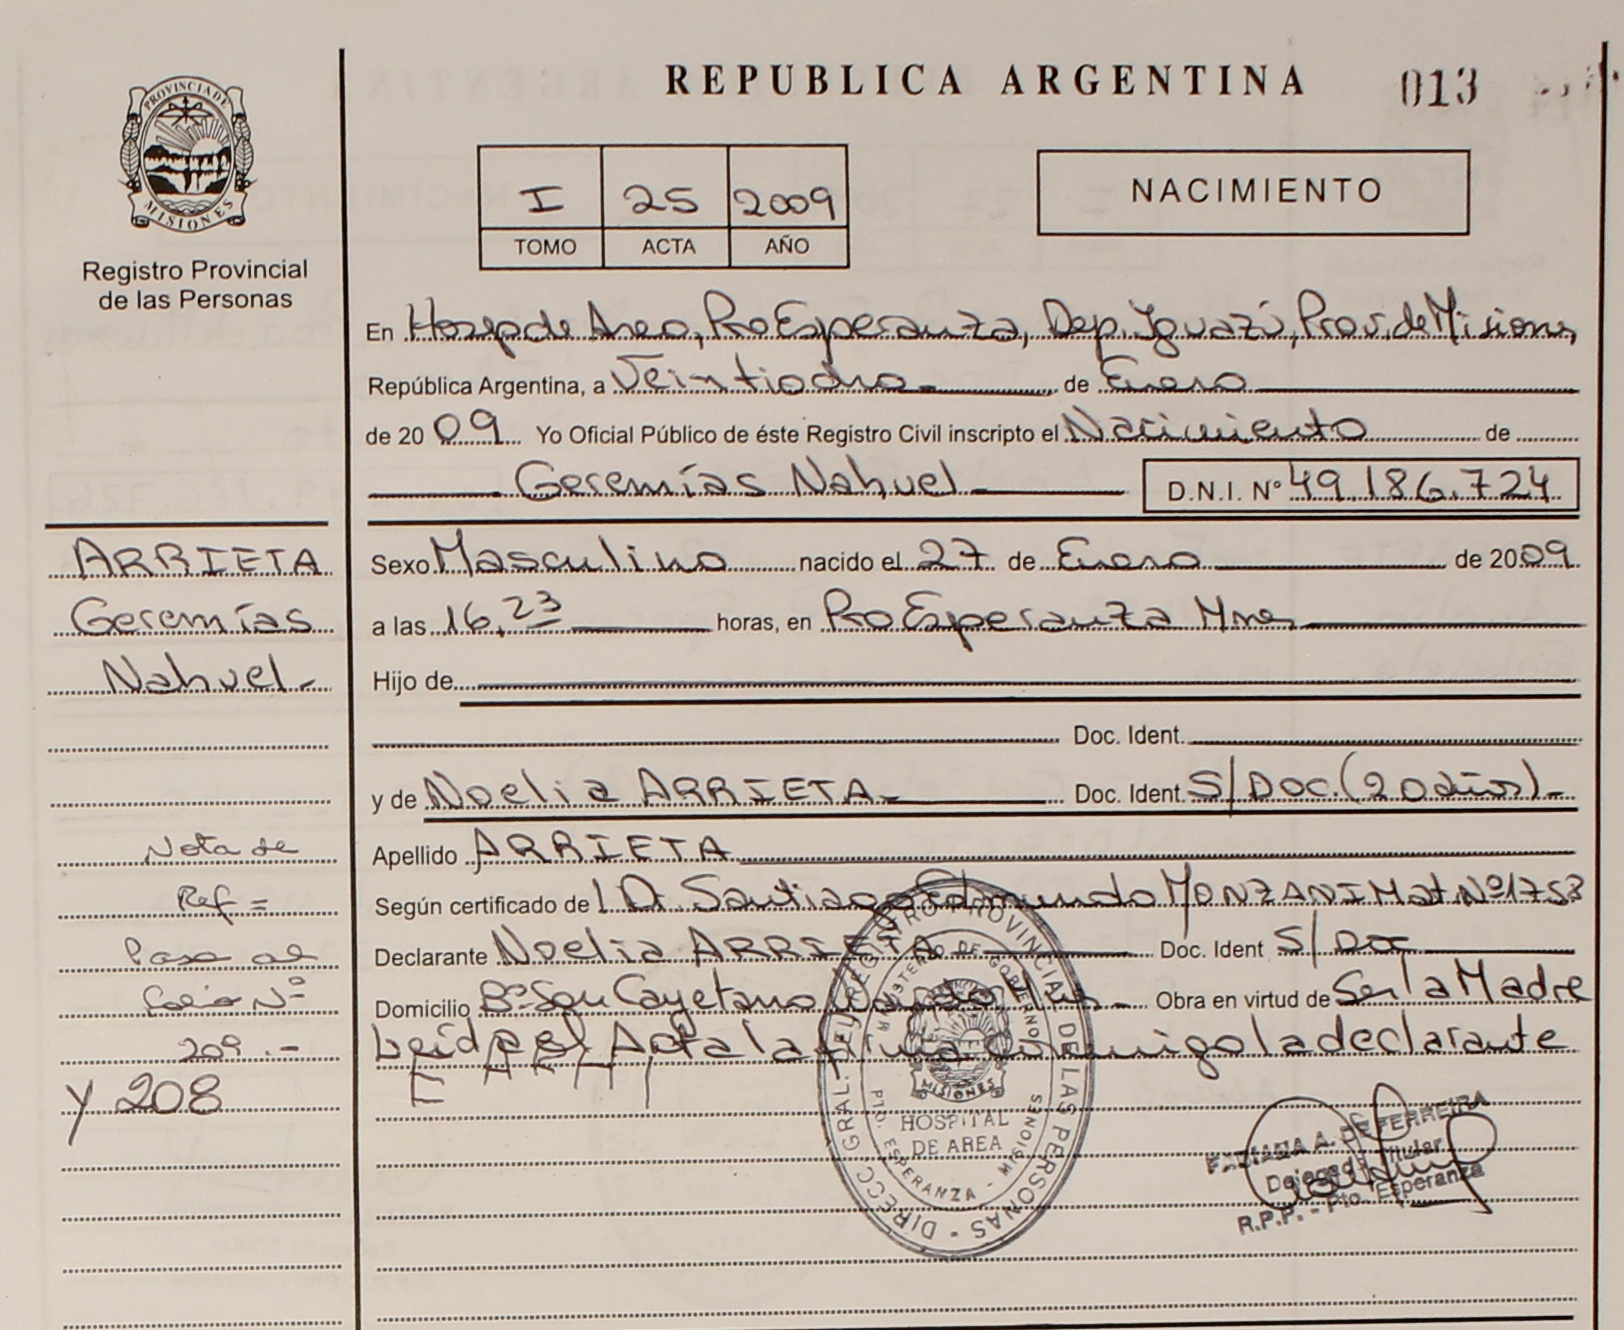 REPUBLICA ARGENTINA 013
PROVINCIA DE
MISIONES
Registro Provincial
de las Personas
I 25 2009
TOMO ACTA AÑO
NACIMIENTO
En Hosp de Area, Pto Esperanza, Dep. Iguazú, Prov. de Misiones,
República Argentina, a Veintiocho de Enero
de 2009 Yo Oficial Público de éste Registro Civil inscripto el Nacimiento de
Geremías Nahuel D.N.I. Nº 49.186.724
ARRIETA
Geremías
Nahuel
Sexo Masculino nacido el 27 de Enero de 2009
a las 16,23 horas, en Pto Esperanza Mnes
Hijo de
Doc. Ident.
y de Noelia ARRIETA Doc. Ident. S/Doc. (20 años)
Apellido ARRIETA
Según certificado de Santiago Edmundo MONZANI Mat Nº 1753
Declarante Noelia ARRIETA Doc. Ident S/Doc
Domicilio Bº San Cayetano Obra en virtud de Ser la Madre
Leída el Acta la firma conmigo la declarante
Nota de
Ref =
Pase al
folio Nº
209.-
y 208
DIRECC. GRAL. REGISTRO PROVINCIAL DE LAS PERSONAS
MINISTERIO DE GOBIERNO
MISIONES
HOSPITAL
DE AREA
PTO. ESPERANZA - MISIONES
A. DE FERREIRA
Titular
R.P.P. - Pto. Esperanza